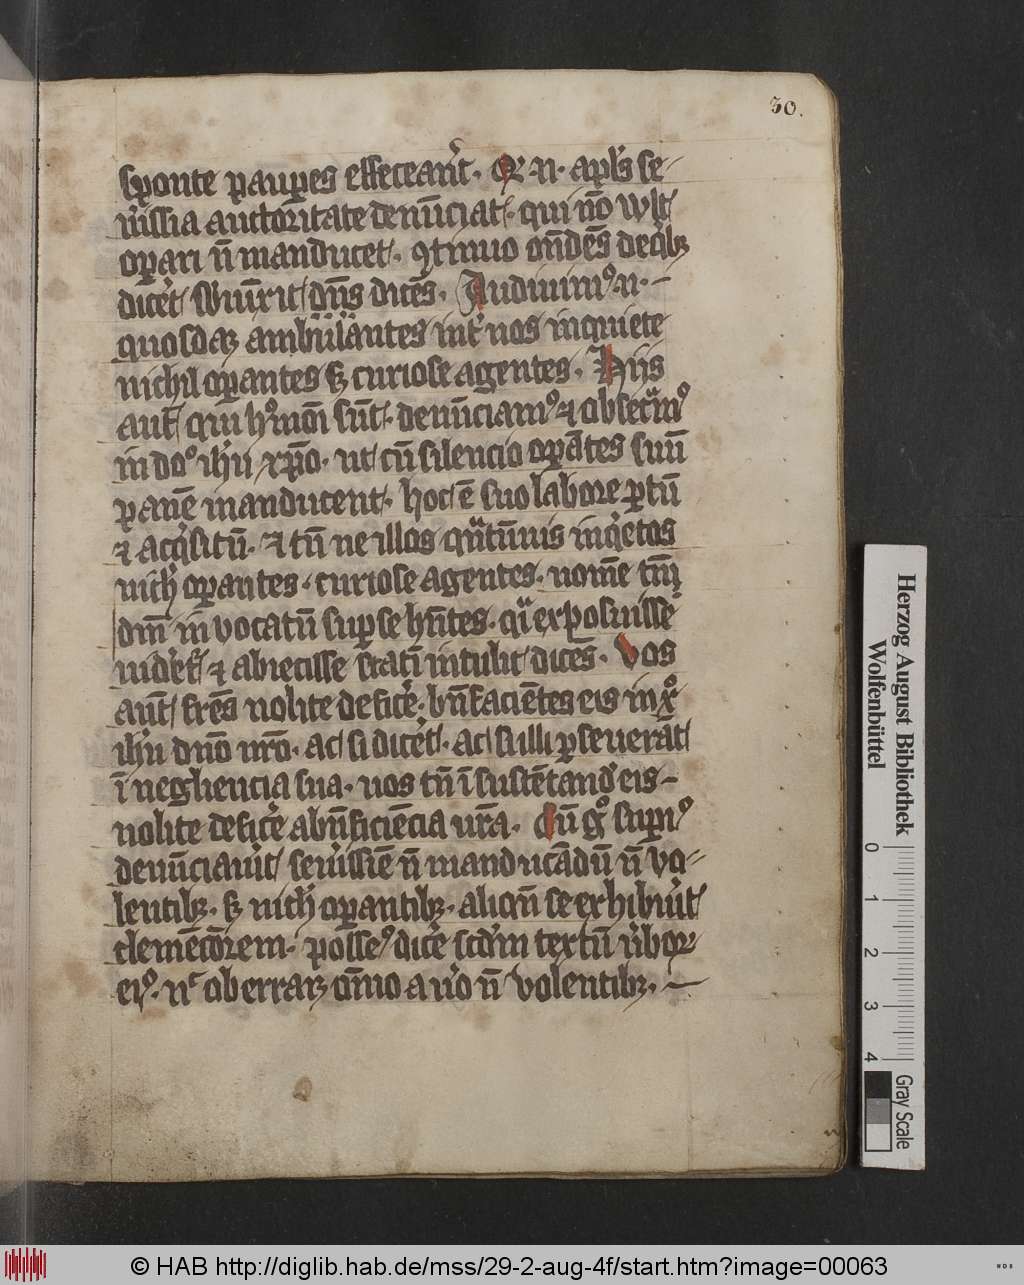 30.
sponte paupes effeceāt̄. Q̄ n̄. apl's se-
uissia auctoritate denūciat. qui nō vult
opari n̄ manducet. 9tinuo ondēs de qb3
dicet subiūxit dn̄s dicēs. Audiuim9 n̄. -
quosdam ambulantes int' nos inquiete
nichil opantes s3 curiose agentes. Hiis
aut̄ qui h9modi sūt. denūciam9 ⁊ obsecram9
in dō ih'u xpō. ut cū silencio opātes suū
panē manducent. hoc ē suo labore ptū
⁊ acq'sitū. ⁊ tū ne illos qntūuis inq'etos
nich' opantes. curiose agentes. nomē tn̄
dn̄i inuocatū sup se hn̄tes. q'i exposuisse
uidet̄ ⁊ abiecisse statī intulit dicēs. Vos
aut̄ fr̄es nolite deficē. bn̄facientes eis in x̄o
ih'u dn̄o nr̄o. ac si dicet. ac si illi pseuerāt
ī negliencia sua. uos tn̄ ī sustētando eis -
nolite deficē a bn̄ficiēcia ur̄a. Cū g° supi9
denūciauit seuissiē n̄ manducādū n̄ vo-
lentib3. s3 nich' opantib3. aliqn̄ se exhibuit
clemēcōrem. posse9 dicē scd'm textū ūbor
ei9. n̄c oberrare om̄io a u'o n̄ volentib3. -
Herzog August Bibliothek
Wolfenbüttel
0
1
2
3
4
Gray Scale
© HAB http://diglib.hab.de/mss/29-2-aug-4f/start.htm?image=00063